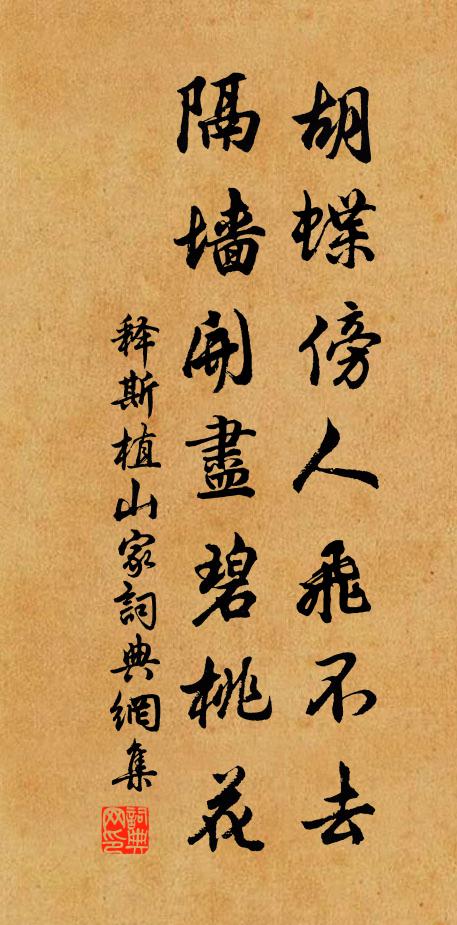 胡蝶傍人飛不去
隔墻開盡碧桃花
释斯植山家詞典網集
詞典網印